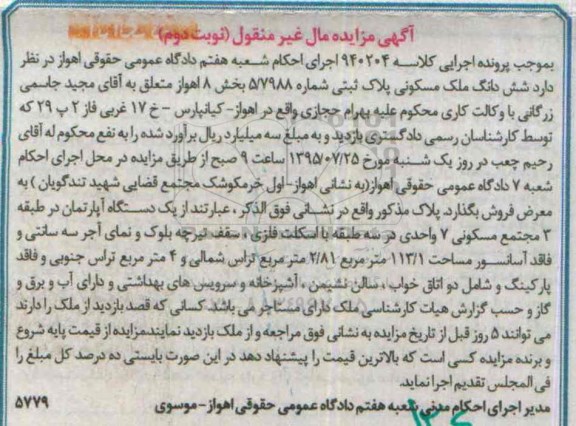 آگهی مزایده مال غیر منقول (نوبت دوم)
بموجب پرونده اجرایی کلاسه ۹۴۰۲۰۴ اجرای احکام شعبه هفتم دادگاه عمومی حقوقی اهواز در نظر
دارد شش دانگ ملک مسکونی پلاک ثبتی شماره ۵/۷۹۸۸ بخش ۸ اهواز متعلق به آقای مجید جاسمی
زرگانی با وکالت کاری محکوم علیه بهرام حجازی واقع در اهواز- کیانپارس - خ ۱۷ غربی فاز ۲ پ ۲۹ که
توسط کارشناسان رسمی دادگستری بازدید و به مبلغ سه میلیارد ریال برآورد شده را به نفع محکوم له آقای
رحیم چعب در روز یک شنبه مورخ ۱۳۹۵/۰۷/۲۵ ساعت ۹ صبح از طریق مزایده در محل اجرای احکام
شعبه ۷ دادگاه عمومی حقوقی اهواز(به نشانی اهواز-اول خرمکوشک مجتمع قضایی شهید تندگویان ) به
معرض فروش بگذارد. پلاک مذکور واقع در نشانی فوق الذکر ، عبارتند از یک دستگاه آپارتمان در طبقه
۳ مجتمع مسکونی ۷ واحدی در سه طبقه با اسکلت فلزی ، سقف تیرچه بلوک و نمای آجر سه سانتی و
فاقد آسانسور مساحت ۱۱۳/۱ متر مربع ۲/۸۱ متر مربع تراس شمالی و ۴ متر مربع تراس جنوبی و فاقد
پارکینگ و شامل دو اتاق خواب ، سالن نشیمن ، آشپزخانه و سرویس های بهداشتی و دارای آب و برق و
گاز و حسب گزارش هیات کارشناسی ملک دارای مستاجر می باشد. کسانی که قصد بازدید از ملک را دارند
می توانند ۵ روز قبل از تاریخ مزایده به نشانی فوق مراجعه و از ملک بازدید نمایند.مزایده از قیمت پایه شروع
و برنده مزایده کسی است که بالاترین قیمت را پیشنهاد دهد در این صورت بایستی ده درصد کل مبلغ را
فی المجلس تقدیم اجرا نماید.
مدیر اجرای احکام مدنی شعبه هفتم دادگاه عمومی حقوقی اهواز-موسوی ۵۷۷۹